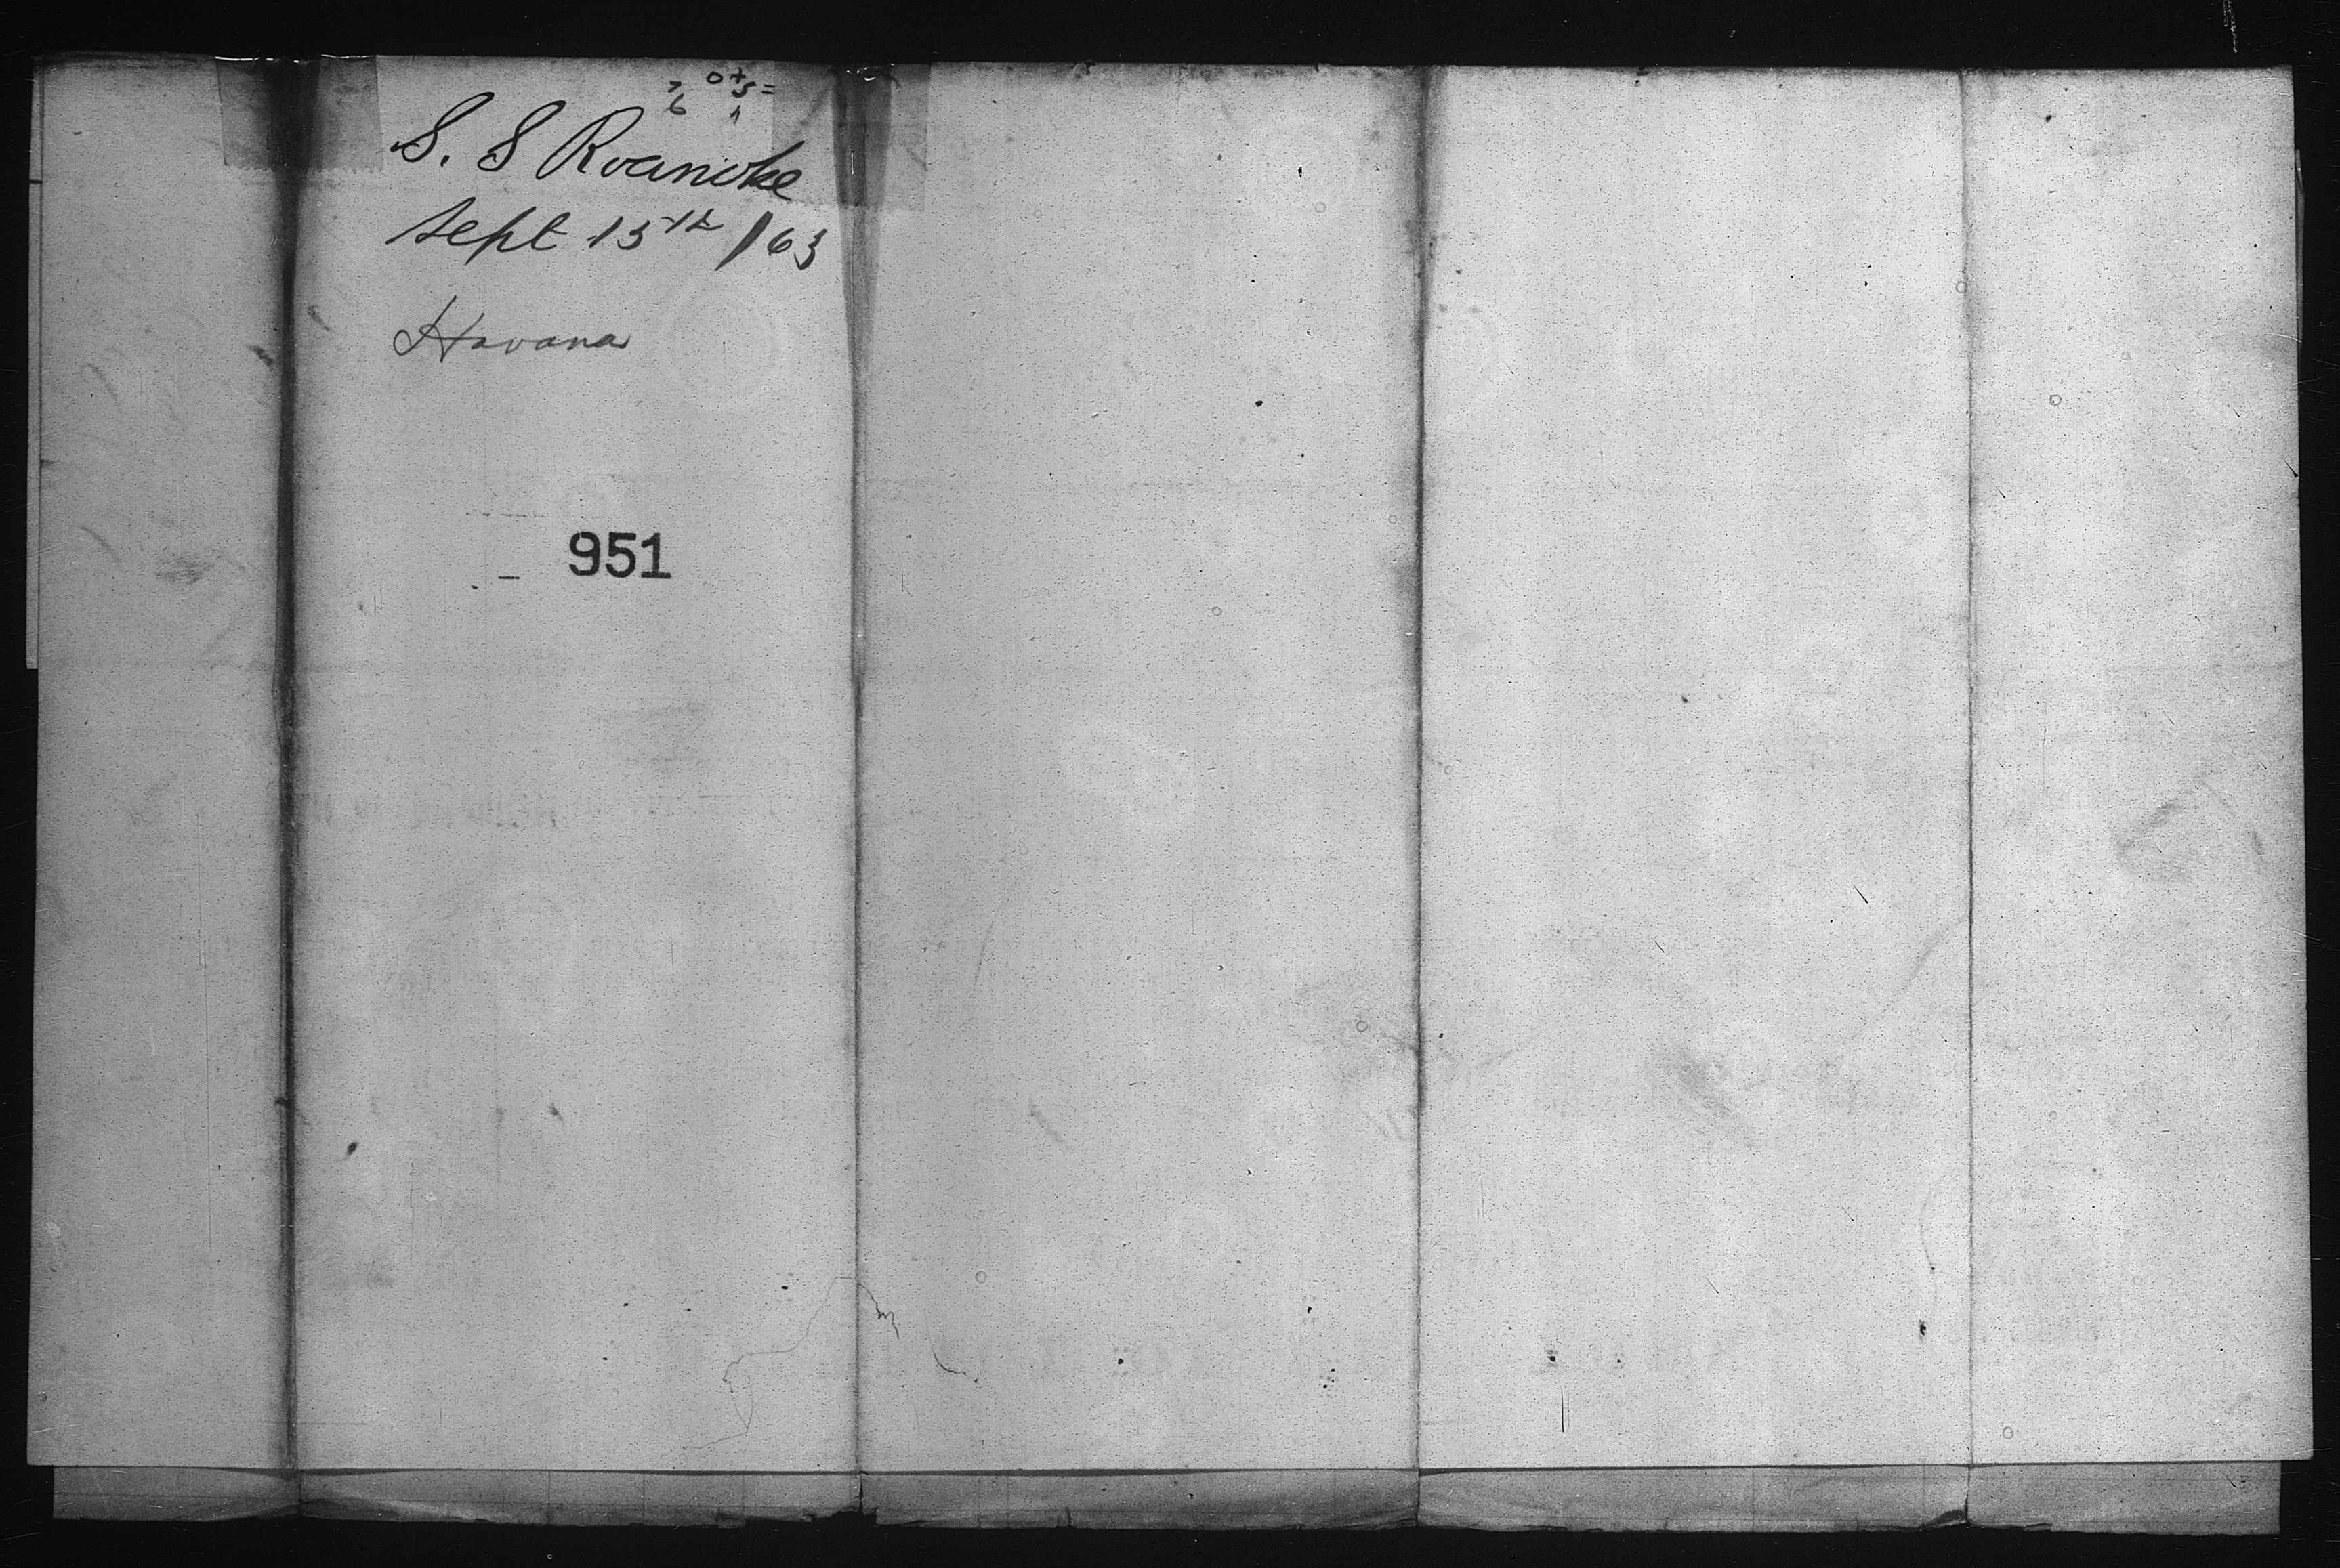 S. S Roanoke
Sept 15th /63
Havana
951